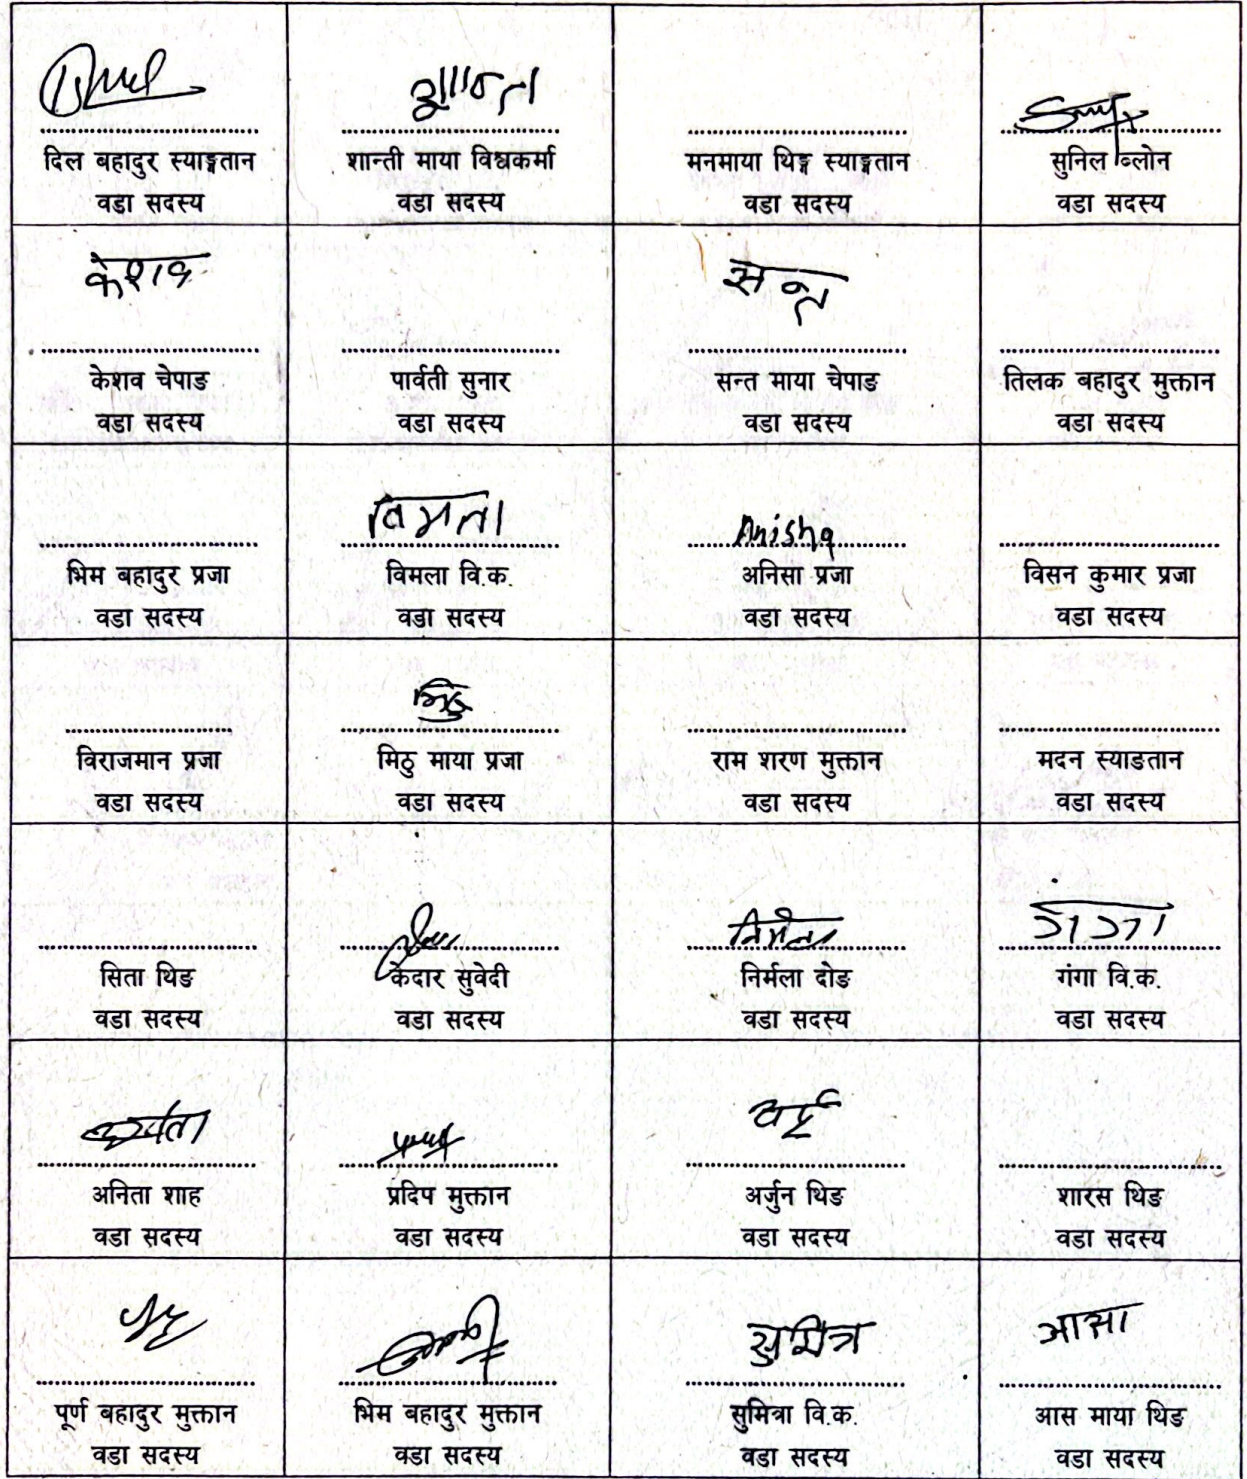 शान्ता
दिल बहादुर स्याङ्गतान
वडा सदस्य
शान्ती माया विश्वकर्मा
वडा सदस्य
मनमाया थिङ्ग स्याङ्गतान
वडा सदस्य
सुनिल ब्लोन
वडा सदस्य
केशव
सन्त
केशव चेपाङ
वडा सदस्य
पार्वती सुनार
वडा सदस्य
सन्त माया चेपाङ
वडा सदस्य
तिलक बहादुर मुक्तान
वडा सदस्य
विमला
Anisha
भिम बहादुर प्रजा
वडा सदस्य
विमला वि.क.
वडा सदस्य
अनिसा प्रजा
वडा सदस्य
विसन कुमार प्रजा
वडा सदस्य
मिठु
विराजमान प्रजा
वडा सदस्य
मिठु माया प्रजा
वडा सदस्य
राम शरण मुक्तान
वडा सदस्य
मदन स्याङतान
वडा सदस्य
निर्मला
गंगा
सिता थिङ
वडा सदस्य
केदार सुवेदी
वडा सदस्य
निर्मला दोङ
वडा सदस्य
गंगा वि.क.
वडा सदस्य
अनिता शाह
वडा सदस्य
प्रदिप मुक्तान
वडा सदस्य
अर्जुन थिङ
वडा सदस्य
शारस थिङ
वडा सदस्य
सुमित्रा
आसा
पूर्ण बहादुर मुक्तान
वडा सदस्य
भिम बहादुर मुक्तान
वडा सदस्य
सुमित्रा वि.क.
वडा सदस्य
आस माया थिङ
वडा सदस्य